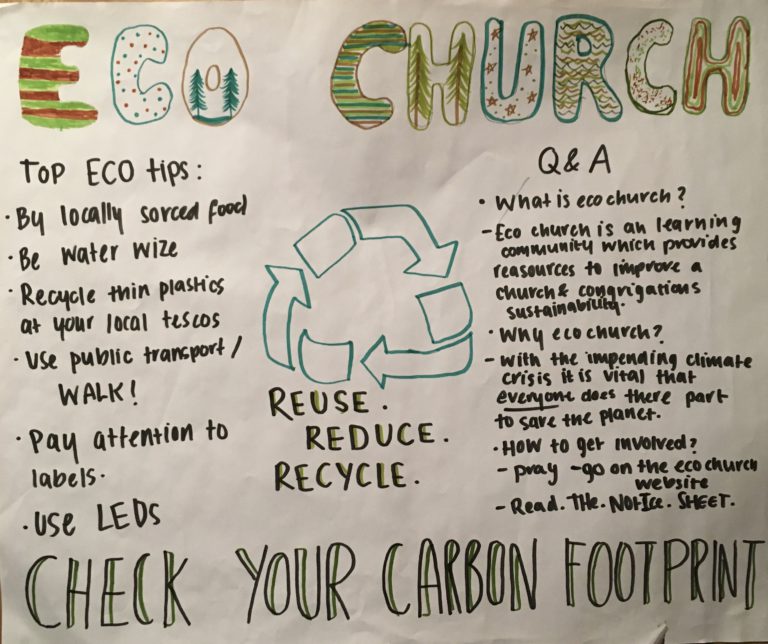 ECO CHURCH
TOP ECO tips:
· By locally sorced food
· Be water wize
· Recycle thin plastics
at your local tescos
· Use public transport /
WALK!
· Pay attention to
labels.
· Use LEDs
REUSE.
REDUCE.
RECYCLE.
Q & A
· What is eco church?
- Eco church is an learning
community which provides
reasources to improve a
church & congrigations
sustainability.
· Why eco church?
- With the impending climate
crisis it is vital that
everyone does there part
to save the planet.
· How to get involved?
- pray - go on the eco church
website
- Read. THE. NOTICE. SHEET.
CHECK YOUR CARBON FOOTPRINT